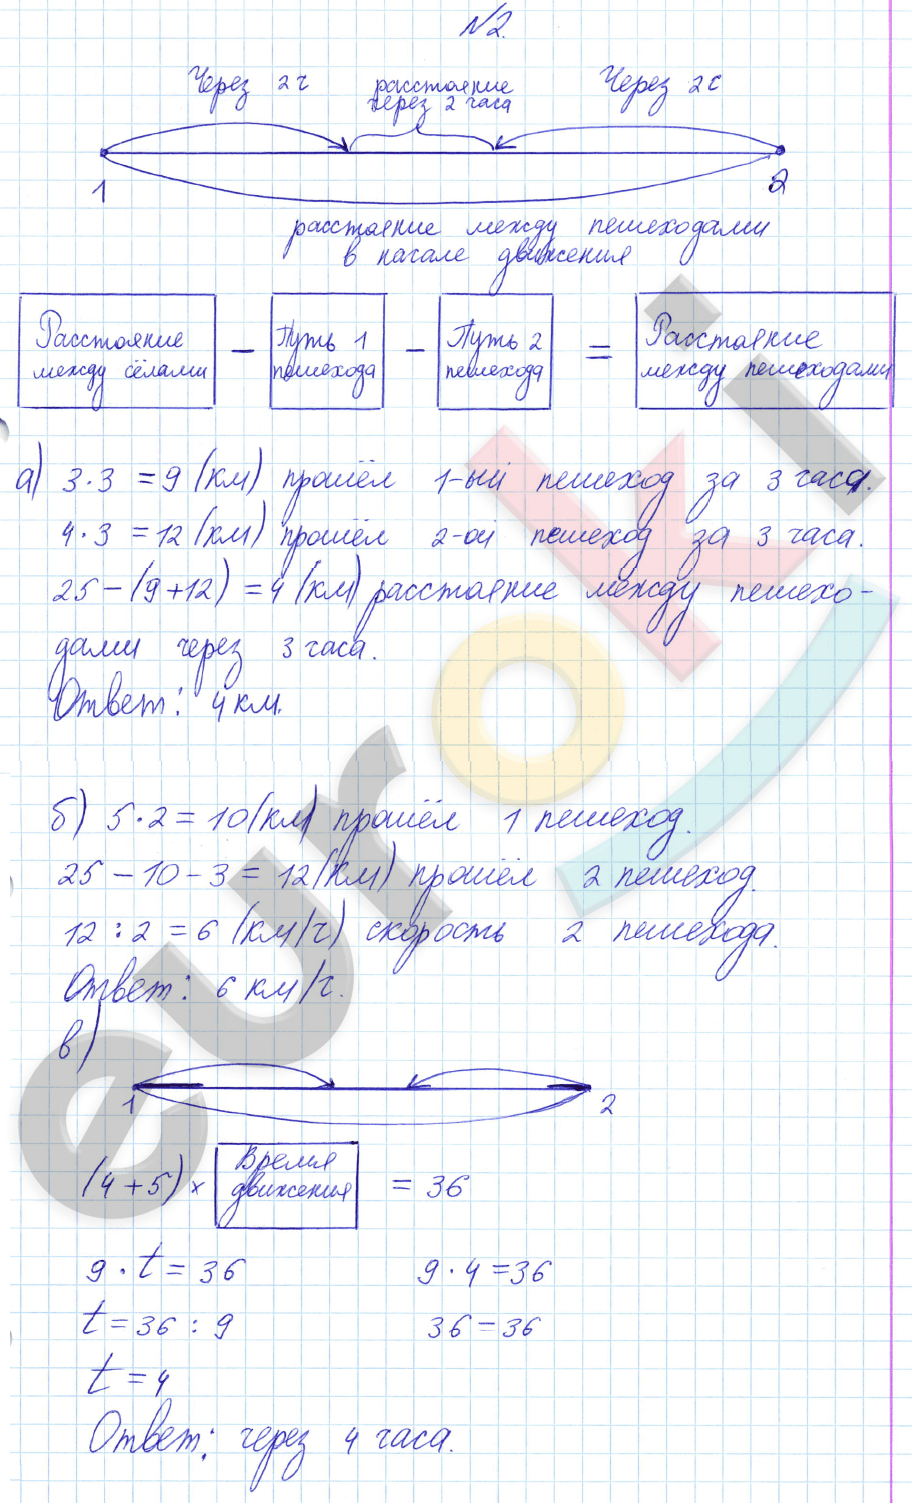 №2.
Через 2ч расстояние Через 2ч
через 2 часа
1 2
расстояние между пешеходами
в начале движения
Расстояние Путь 1 Путь 2 Расстояние
между сёлами − пешехода − пешехода = между пешеходами
а) 3·3 = 9 (км) прошёл 1-ый пешеход за 3 часа.
4·3 = 12 (км) прошёл 2-ой пешеход за 3 часа.
25 − (9+12) = 4 (км) расстояние между пешехо-
дами через 3 часа.
Ответ: 4 км.
б) 5·2 = 10 (км) прошёл 1 пешеход.
25 − 10 − 3 = 12 (км) прошёл 2 пешеход.
12 : 2 = 6 (км/ч) скорость 2 пешехода.
Ответ: 6 км/ч.
в)
1 2
Время
(4+5) × движения = 36
9·t = 36 9·4 = 36
t = 36 : 9 36 = 36
t = 4
Ответ: через 4 часа.
euroki